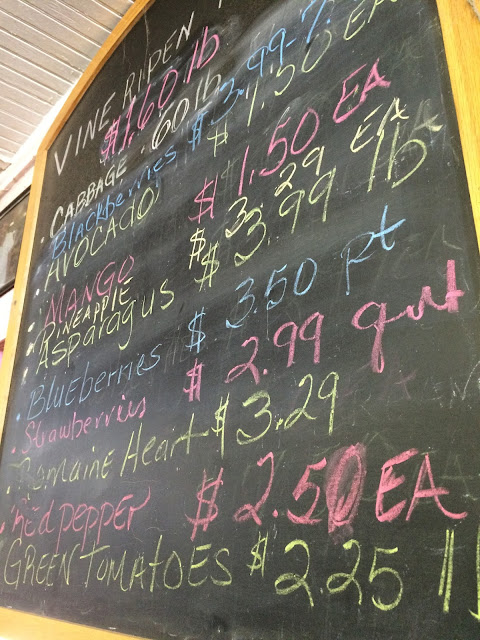 VINE RIPEN
$1.60 lb
CABBAGE .60 lb
Blackberries $3.99
AVOCADO $1.50 EA
MANGO $1.50 EA
PINEAPPLE $3.29 EA
Asparagus $3.99 lb
Blueberries $3.50 pt
Strawberries $2.99 qut
Romaine Heart $3.29
Red pepper $2.50 EA
GREEN TOMATOES $2.25